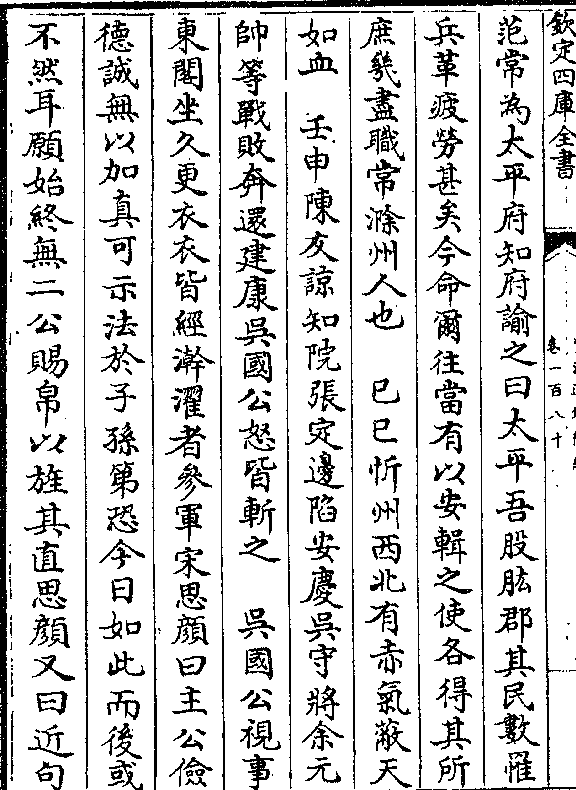 欽定四庫全書
卷一百八十
范常為太平府知府諭之曰太平吾股肱郡其民數罹
兵革疲勞甚矣今命爾往當有以安輯之使各得其所
庶幾盡職常滁州人也　己巳忻州西北有赤氣蔽天
如血　壬申陳友諒知院張定邊陷安慶吳守將余元
帥等戰敗奔還建康吳國公怒皆斬之　吳國公視事
東閣坐久更衣衣皆經澣濯者參軍宋思顔曰主公儉
德誠無以加真可示法於子孫第恐今日如此而後或
不然耳願始終無二公賜帛以旌其直思顔又曰近句